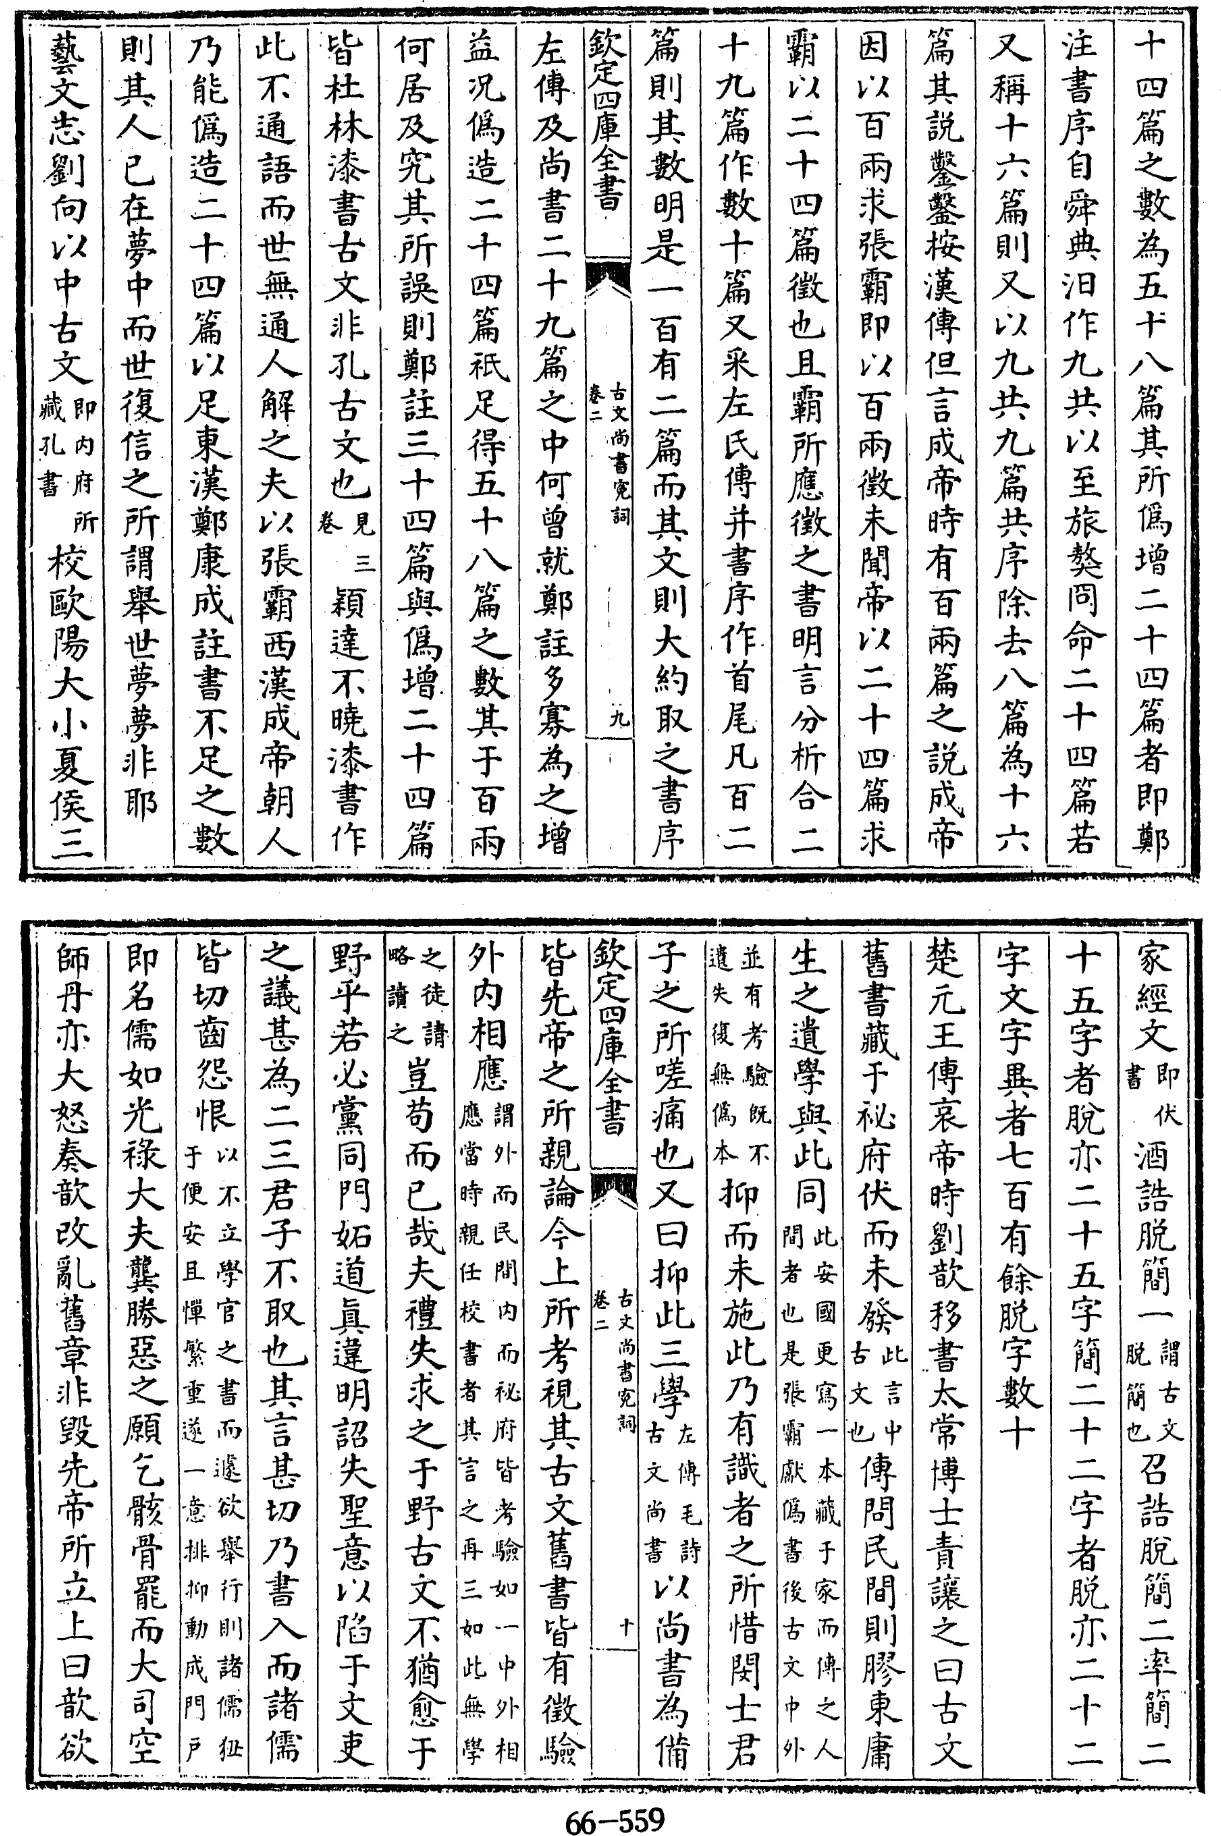 十四篇之數為五十八篇其所僞增二十四篇者即鄭
注書序自舜典汩作九共以至旅獒冏命二十四篇若
又稱十六篇則又以九共九篇共序除去八篇為十六
篇其說鑿鑿按漢傳但言成帝時有百兩篇之説成帝
因以百兩求張霸即以百兩徵未聞帝以二十四篇求
霸以二十四篇徵也且霸所應徵之書明言分析合二
十九篇作數十篇又采左氏傳并書序作首尾凡百二
篇則其數明是一百有二篇而其文則大約取之書序
欽定四庫全書
古文尚書寃詞
卷二
九
左傳及尚書二十九篇之中何曾就鄭註多寡為之增
益況僞造二十四篇祇足得五十八篇之數其于百兩
何居及究其所誤則鄭註三十四篇與僞增二十四篇
皆杜林漆書古文非孔古文也見三卷穎達不曉漆書作
此不通語而世無通人解之夫以張霸西漢成帝朝人
乃能僞造二十四篇以足東漢鄭康成註書不足之數
則其人已在夢中而世復信之所謂舉世夢夢非耶
藝文志劉向以中古文即内府所藏孔書校歐陽大小夏侯三
家經文即伏書酒誥脱簡一謂古文脱簡也召誥脫簡二率簡二
十五字者脫亦二十五字簡二十二字者脱亦二十二
字文字異者七百有餘脱字數十
楚元王傳哀帝時劉歆移書太常博士責讓之曰古文
舊書藏于祕府伏而未發此言中古文也傳問民間則膠東庸
生之遺學與此同此安國更寫一本藏于家而傳之人間者也是張霸獻僞書後古文中外
並有考驗既不遺失復無僞本抑而未施此乃有識者之所惜閔士君
子之所嗟痛也又曰抑此三學左傳毛詩古文尚書以尚書為備
欽定四庫全書
古文尚書寃詞
卷二
十
皆先帝之所親論今上所考視其古文舊書皆有徵驗
外内相應謂外而民間内而祕府皆考驗如一中外相應當時親任校書者其言之再三如此無學
之徒請略讀之豈苟而已哉夫禮失求之于野古文不猶愈于
野乎若必黨同門妬道眞違明詔失聖意以陷于文吏
之議甚為二三君子不取也其言甚切乃書入而諸儒
皆切齒怨恨以不立學官之書而遽欲舉行則諸儒狃于便安且憚繁重遂一意排抑動成門戸
即名儒如光祿大夫龔勝惡之願乞骸骨罷而大司空
師丹亦大怒奏歆改亂舊章非毀先帝所立上曰歆欲
66-559